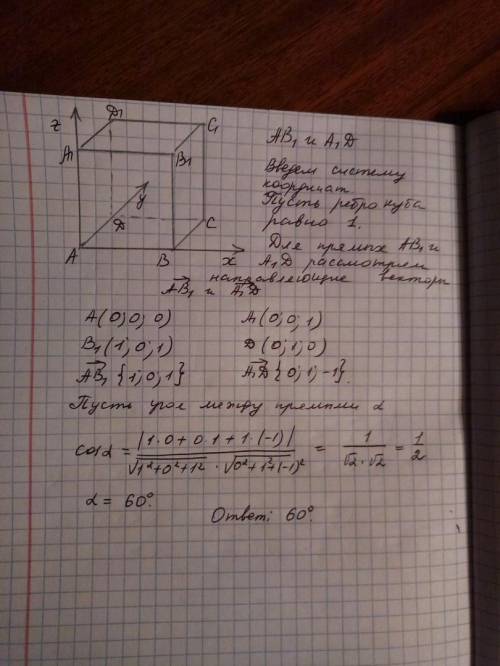 z
D₁
C₁
A₁
B₁
y
D
C
A
B
x
AB₁ и A₁D
Введем систему
координат
Пусть ребро куба
равно 1.
Для прямых AB₁ и
A₁D рассмотрим
направляющие векторы
AB₁ и A₁D
A(0; 0; 0) A₁(0; 0; 1)
B₁(1; 0; 1) D(0; 1; 0)
AB₁{1; 0; 1} A₁D{0; 1; -1}.
Пусть угол между прямыми α
cos α = |1·0 + 0·1 + 1·(-1)| / √1²+0²+1² · √0²+1²+(-1)² = 1/√2·√2 = 1/2
α = 60°.
Ответ: 60°.